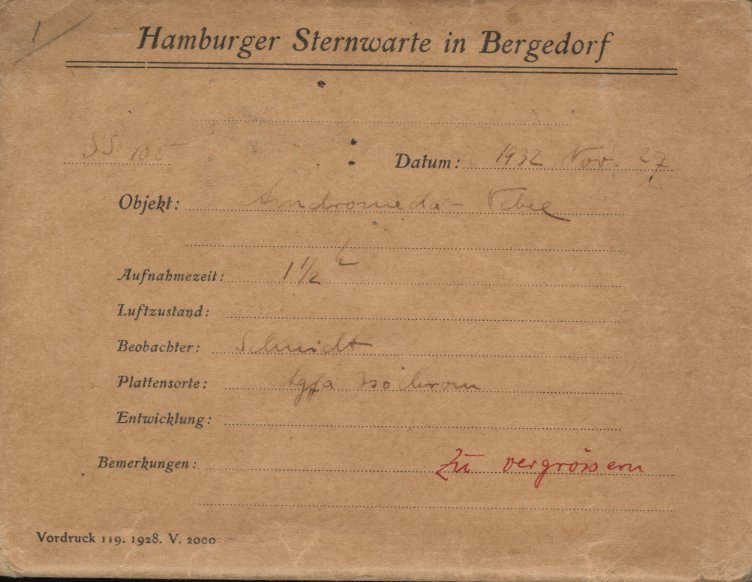 Hamburger Sternwarte in Bergedorf
SS 105 Datum: 1932 Nov. 27
Objekt: Andromeda-Nebel
Aufnahmezeit: 1 1/2 h
Luftzustand:
Beobachter: Schmidt
Plattensorte: Agfa Isochrom
Entwicklung:
Bemerkungen: Zu vergrössern
Vordruck 119. 1928. V. 2000